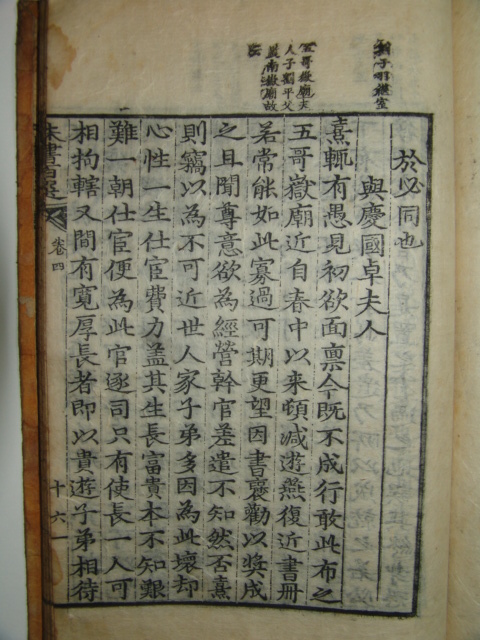 劉子羽樸室
五哥嶽廟夫
人子劉平父
監南嶽廟故
云
於必同也
與慶國卓夫人
熹輒有愚見初欲面稟今既不成行敢此布之
五哥嶽廟近自春中以来頓減遊燕復近書冊
若常能如此寡過可期更望因書褒勸以奬成
之且聞尊意欲為經營幹官差遣不知然否熹
則竊以為不可近世人家子弟多因為此壞却
心性一生仕宦費力盖其生長富貴本不知艱
難一朝仕官便為此官逐司只有使長一人可
相拘轄又間有寛厚長者即以貴遊子弟相待
朱書百選
卷四
十六